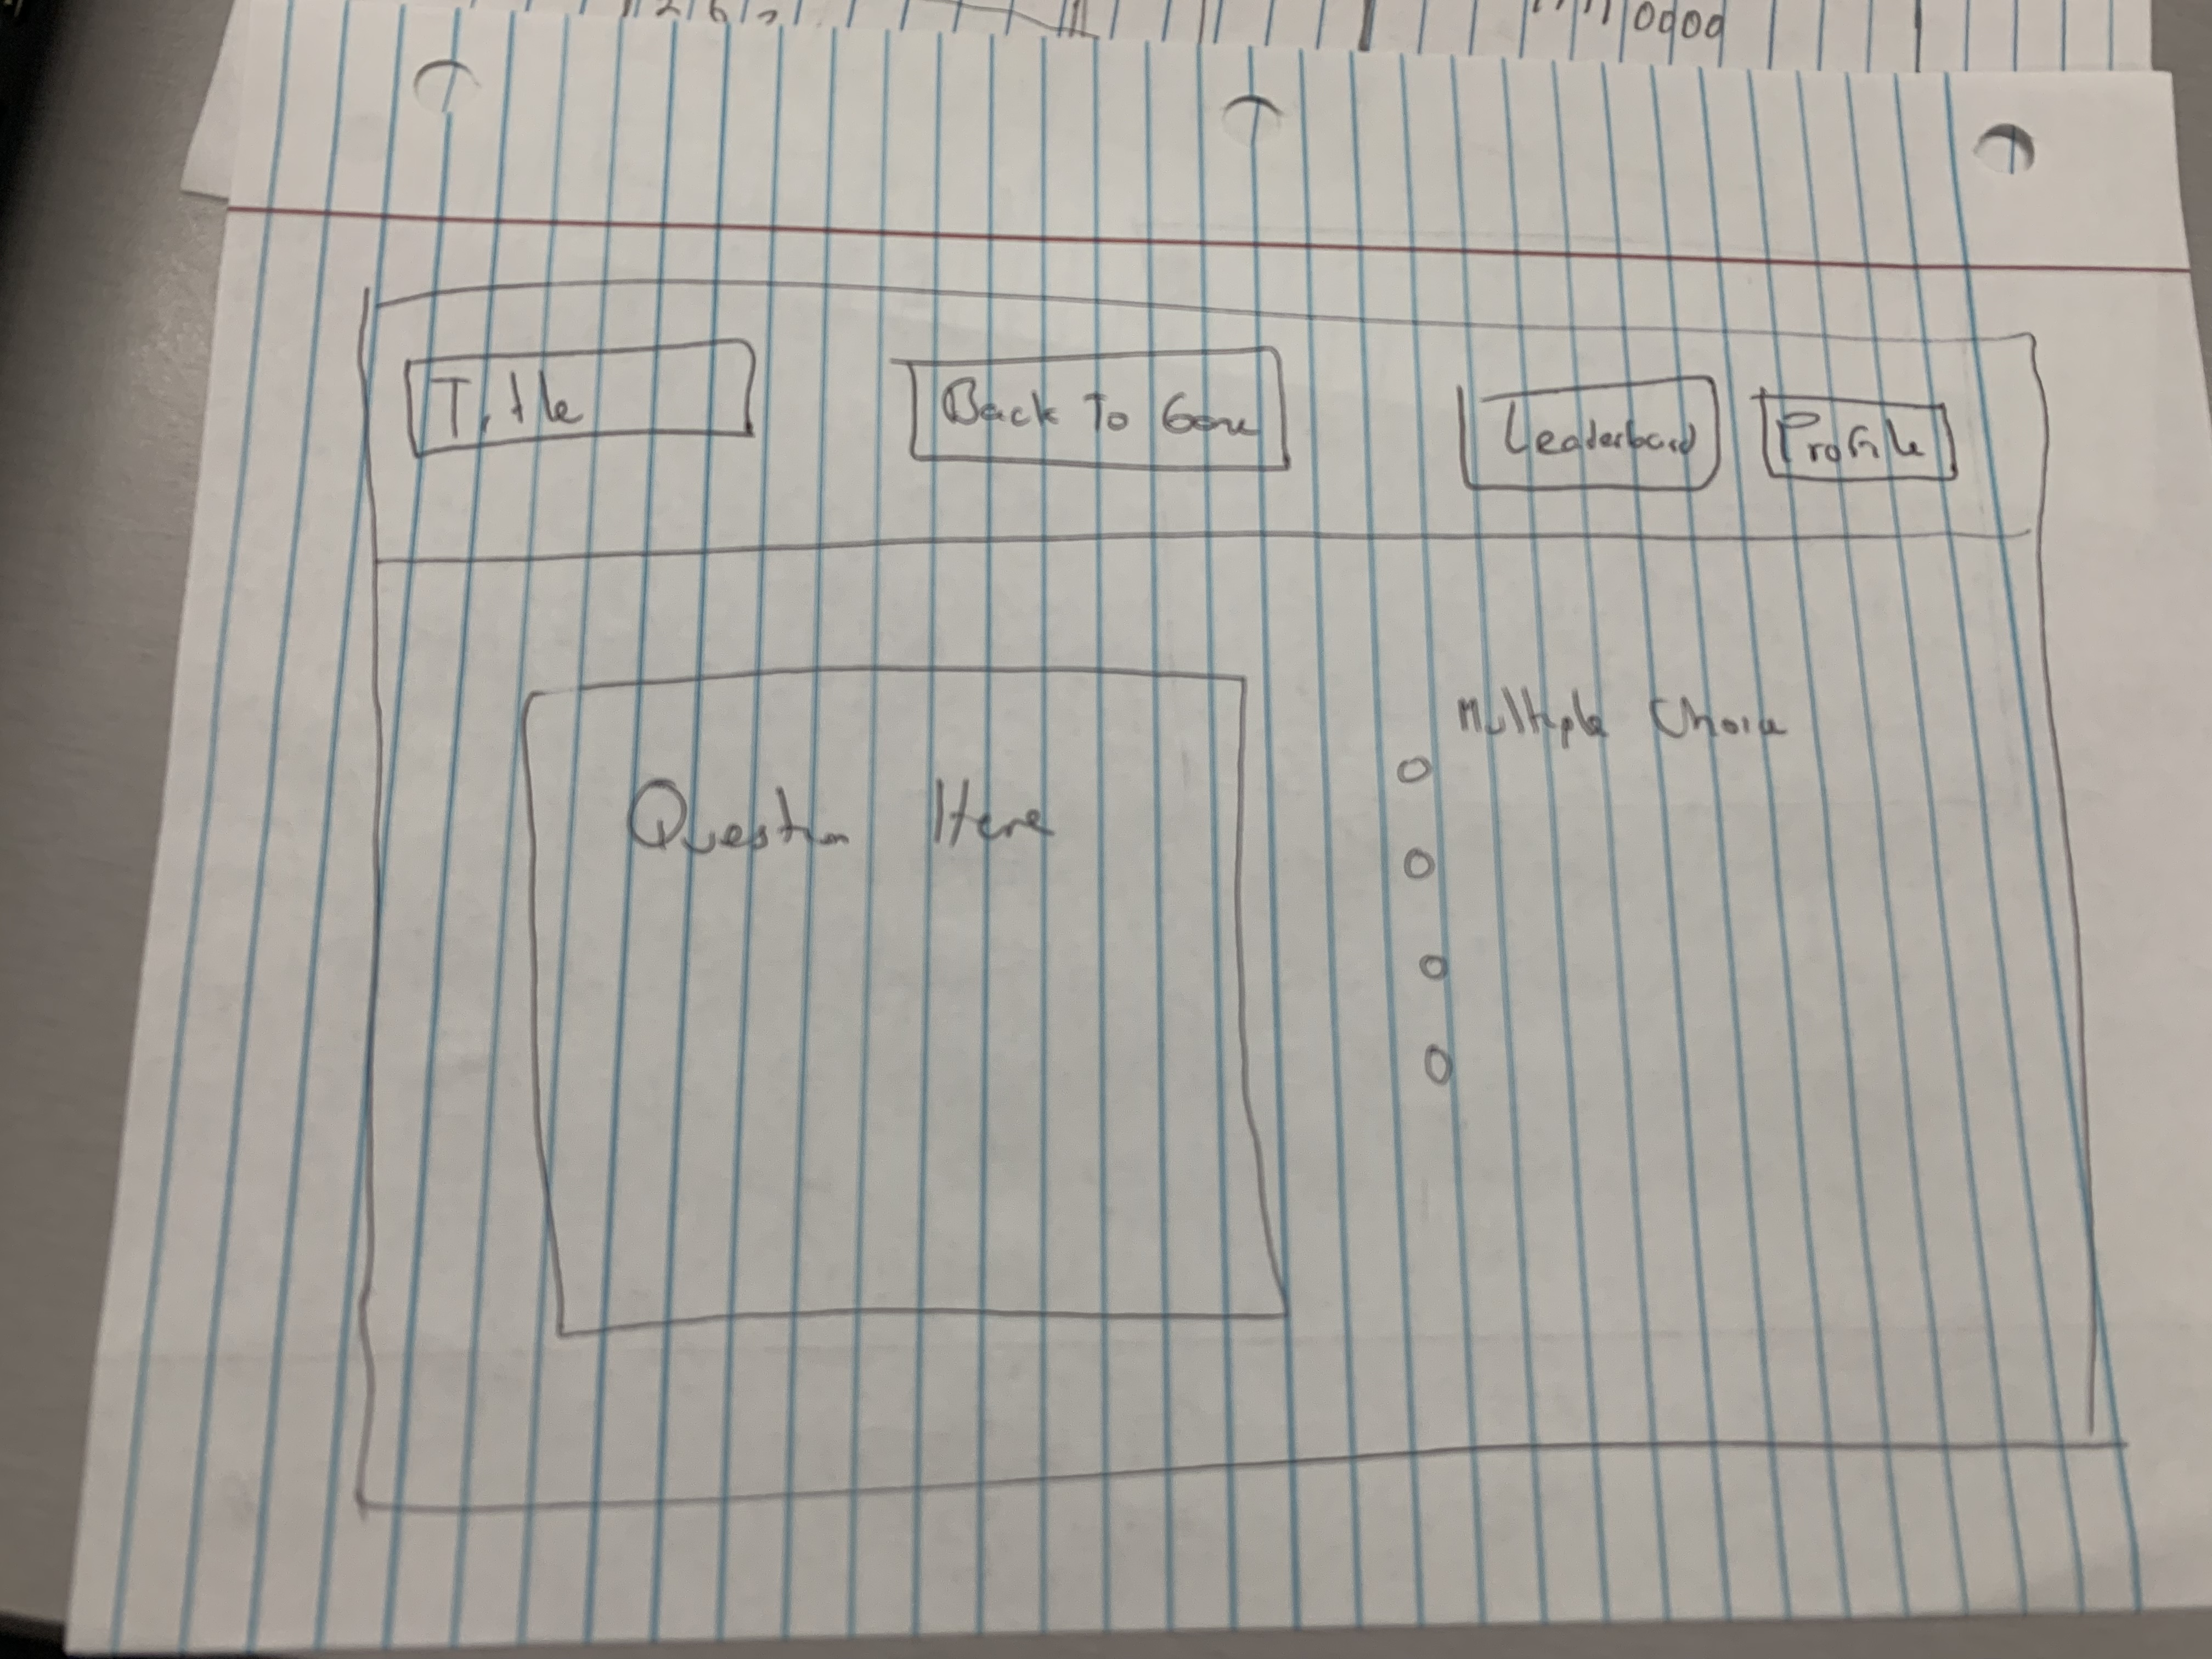 Title
Back To Game
Leaderboard
Profile
Question Here
Multiple Choice